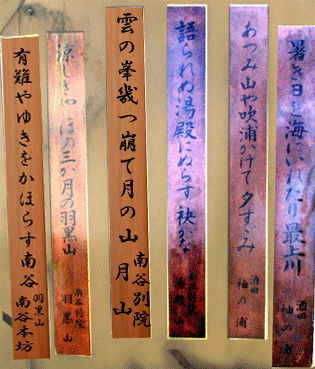 暑き日を海にいれたり最上川
酒田
袖の浦
あつみ山や吹浦かけて夕すゞみ
酒田
袖の浦
語られぬ湯殿にぬらす袂かな
南谷別院
雲の峯幾つ崩て月の山
南谷別院
月山
涼しさやほの三か月の羽黒山
南谷別院
羽黒山
有難やゆきをかほらす南谷
羽黒山
南谷本坊